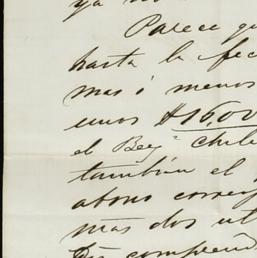 ya no
Parece qu
hasta la fec
mas ó menos
unos $1600
el Berg.ⁿ Chile
también el
abono corresp
mas dos ut
Dn comprend